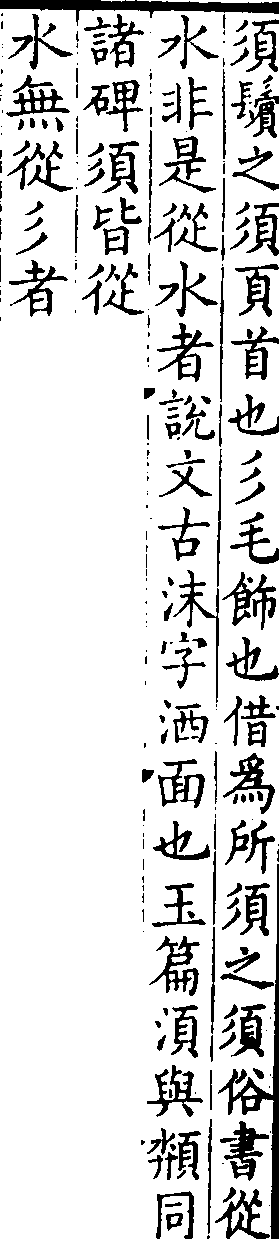 須鬢之須頁首也彡毛飾也借爲所須之須俗書從
水非是從水者說文古沬字洒面也玉篇湏與頮同
諸碑須皆從
水無從彡者